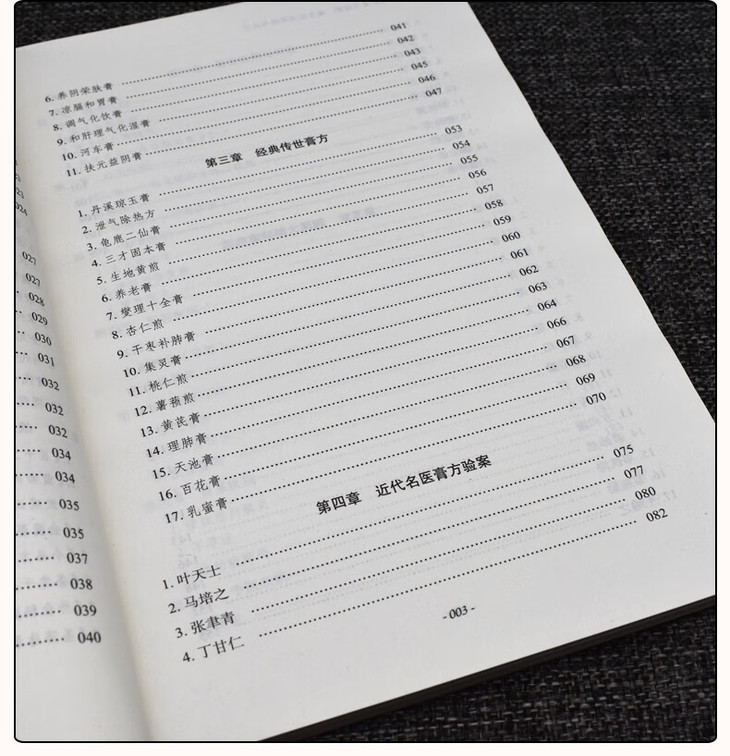 027
027
028
029
030
031
032
032
032
034
034
035
035
037
038
039
040
6. 养阴荣肤膏 …… 041
7. 凉膈和胃膏 …… 042
8. 调气化饮膏 …… 043
9. 和肝理气化湿膏 …… 045
10. 河车膏 …… 046
11. 扶元益阴膏 …… 047
第三章 经典传世膏方
1. 丹溪琼玉膏 …… 053
2. 泄气除热方 …… 054
3. 龟鹿二仙膏 …… 055
4. 三才固本膏 …… 056
5. 生地黄煎 …… 057
6. 养老膏 …… 058
7. 燮理十全膏 …… 059
8. 杏仁煎 …… 060
9. 干枣补肺膏 …… 061
10. 集灵膏 …… 062
11. 桃仁煎 …… 063
12. 薯蓣煎 …… 064
13. 黄芪膏 …… 066
14. 理肺膏 …… 067
15. 天池膏 …… 068
16. 百花膏 …… 069
17. 乳蜜膏 …… 070
第四章 近代名医膏方验案
1. 叶天士 …… 075
2. 马培之 …… 077
3. 张聿青 …… 080
4. 丁甘仁 …… 082
- 003 -